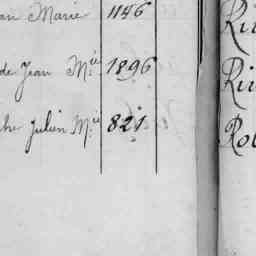 an Marie 1146
de Jean M.ie 1896
che Julien M.ie 821
Ri
Ri
Rol